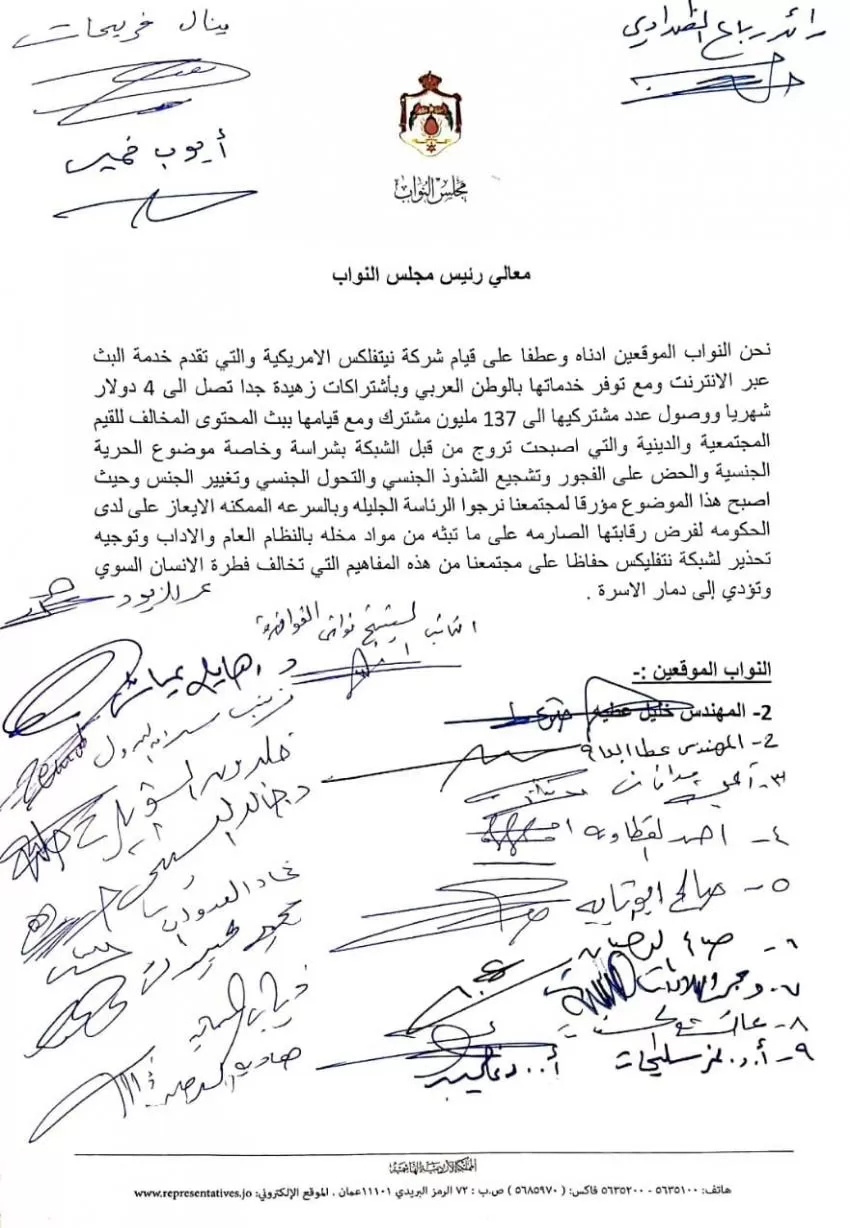 رائد رباع الظهراوي
ينال فريحات
أيوب خميس
مجلس النواب
معالي رئيس مجلس النواب
نحن النواب الموقعين ادناه وعطفا على قيام شركة نيتفلكس الامريكية والتي تقدم خدمة البث
عبر الانترنت ومع توفر خدماتها بالوطن العربي وبأشتراكات زهيدة جدا تصل الى 4 دولار
شهريا ووصول عدد مشتركيها الى 137 مليون مشترك ومع قيامها ببث المحتوى المخالف للقيم
المجتمعية والدينية والتي اصبحت تروج من قبل الشبكة بشراسة وخاصة موضوع الحرية
الجنسية والحض على الفجور وتشجيع الشذوذ الجنسي والتحول الجنسي وتغيير الجنس وحيث
اصبح هذا الموضوع مؤرقا لمجتمعنا نرجوا الرئاسة الجليله وبالسرعه الممكنه الايعاز على لدى
الحكومه لفرض رقابتها الصارمه على ما تبثه من مواد مخله بالنظام العام والاداب وتوجيه
تحذير لشبكة نتفليكس حفاظا على مجتمعنا من هذه المفاهيم التي تخالف فطرة الانسان السوي
وتؤدي إلى دمار الاسرة .
عمر الزيود
النائب
د. هايل عياش
زينب
النواب الموقعين :-
2- المهندس خليل عطيه
2- المهندس عطا
٣-
٤- احمد القطاونه
د خالد
٥- صالح ابو تايه
٦-
٧-
٨- عائشة
٩- أ.د.
المملكة الأردنية الهاشمية
هاتف: ٥٦٣٥١٠٠ - ٥٦٣٥٢٠٠ فاكس: ( ٥٦٨٥٩٧٠ ) ص.ب : ٧٢ الرمز البريدي ١١١٠١عمان . الموقع الإلكتروني: www.representatives.jo